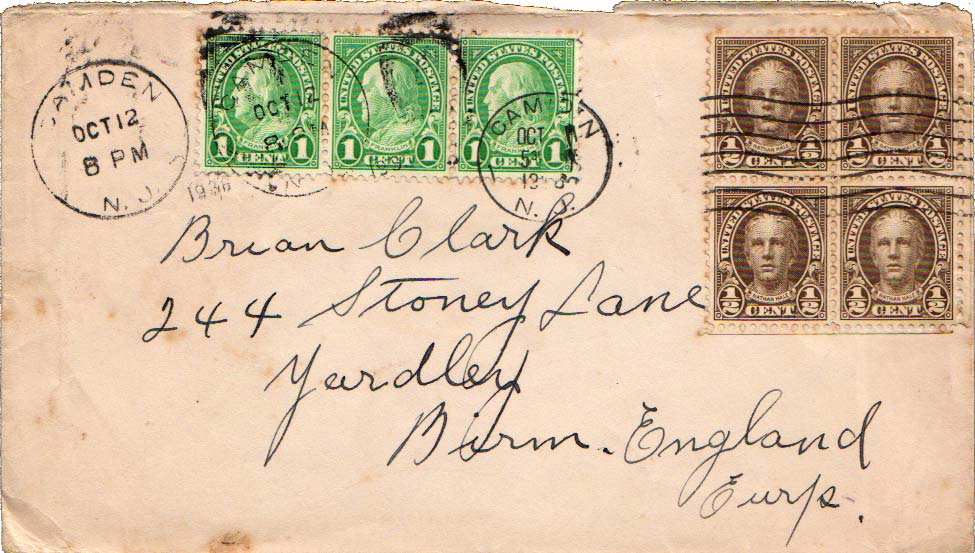 CAMDEN
OCT 12
8 PM
N. J.
UNITED STATES POSTAGE
FRANKLIN
1 CENT 1
UNITED STATES POSTAGE
FRANKLIN
1 CENT 1
UNITED STATES POSTAGE
1 CENT 1
CAMDEN
OCT
N. J.
UNITED STATES POSTAGE
NATHAN HALE
1/2 CENT 1/2
UNITED STATES POSTAGE
NATHAN HALE
1/2 CENT 1/2
UNITED STATES POSTAGE
NATHAN HALE
1/2 CENT 1/2
UNITED STATES POSTAGE
NATHAN HALE
1/2 CENT 1/2
Brian Clark
244 Stoney Lane
Yardley
Birm. England
Eurp.